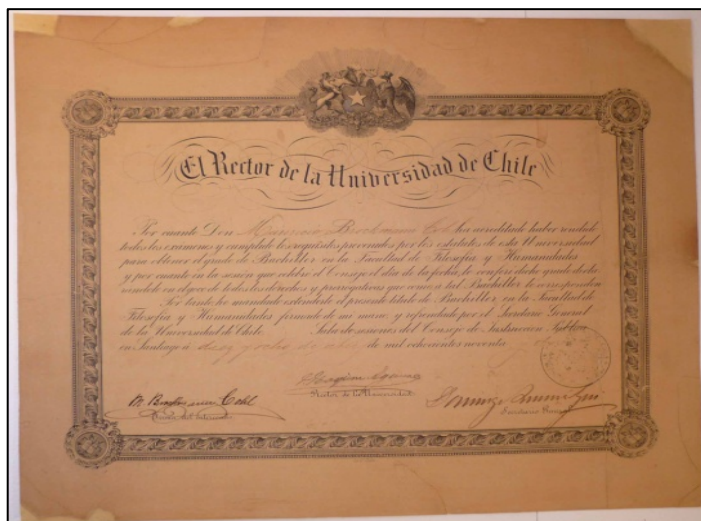 El Rector de la Universidad de Chile
Por cuanto Don ha acreditado haber rendido
todos los exámenes y cumplido los requisitos prevenidos por los estatutos de esta Universidad
para obtener el grado de Bachiller en la Facultad de Filosofía y Humanidades
y por cuanto en la sesión que celebró el Consejo el día de la fecha, le confirió dicho grado
en el goce de todos los derechos y prerrogativas que como a tal Bachiller le corresponden
Por tanto he mandado extenderle el presente título de Bachiller en la Facultad de
Filosofía y Humanidades firmado de mi mano y refrendado por el Secretario General
de la Universidad de Chile. Sala de sesiones del Consejo de Instrucción Pública
en Santiago á de mil ochocientos noventa
Rector de la Universidad
Secretario General